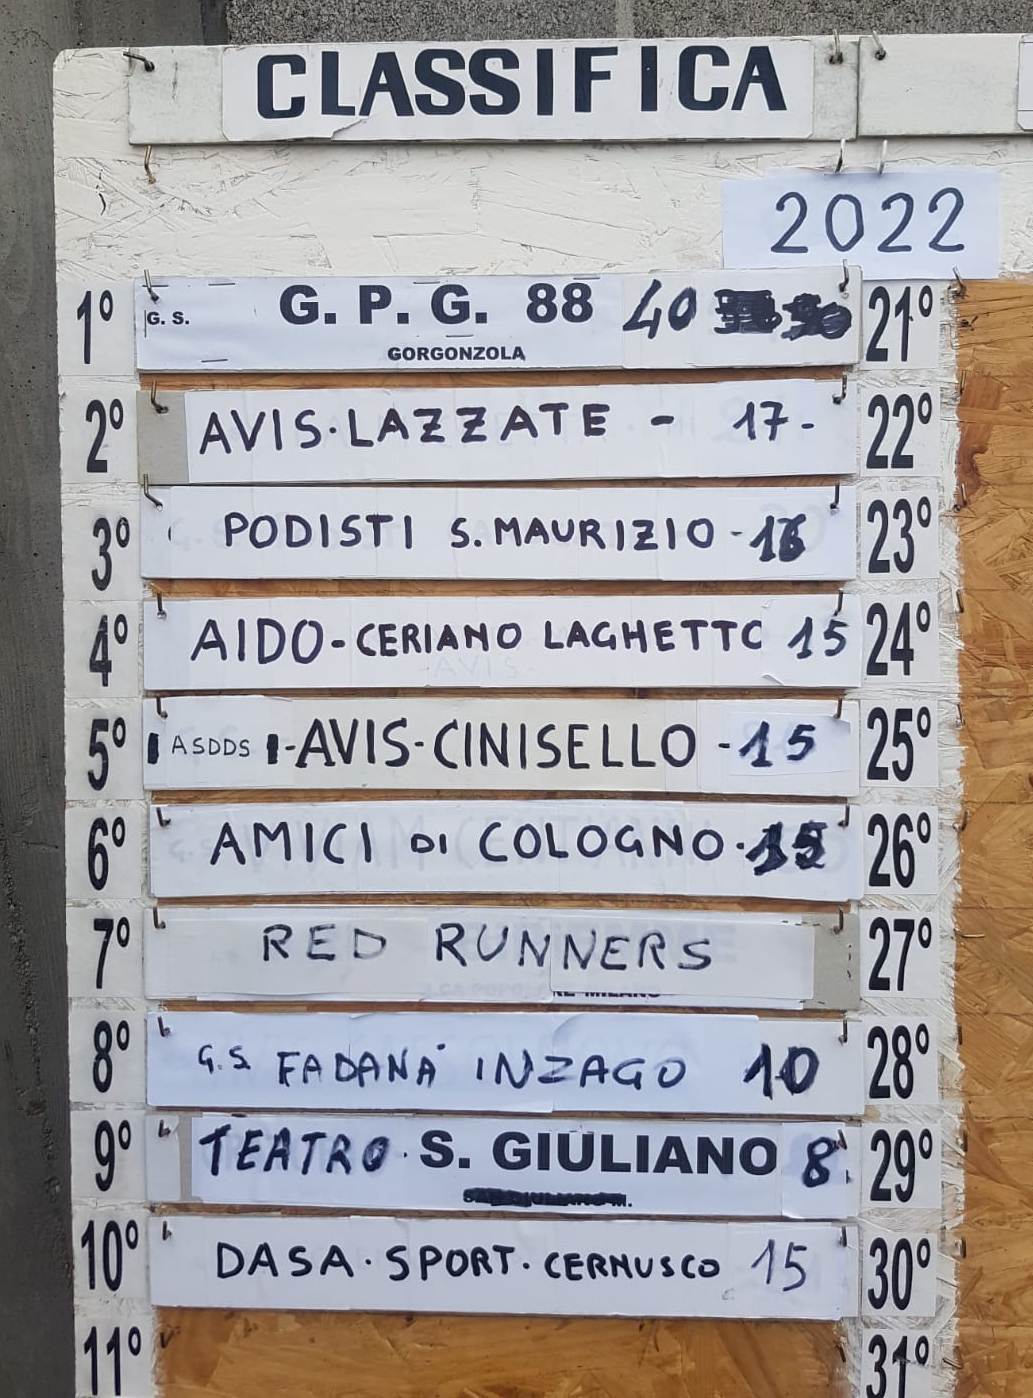 CLASSIFICA
2022
1º G. S. G. P. G. 88 40 21º
GORGONZOLA
2º AVIS·LAZZATE - 17- 22º
3º PODISTI S. MAURIZIO - 16 23º
4º AIDO-CERIANO LAGHETTO 15 24º
5º ASDDS -AVIS-CINISELLO - 15 25º
6º AMICI DI COLOGNO · 15 26º
7º RED RUNNERS 27º
8º G.S FADANA' INZAGO 10 28º
9º TEATRO · S. GIULIANO 8 29º
10º DASA·SPORT·CERNUSCO 15 30º
11º 31º